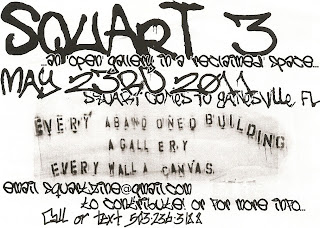 SQUART 3
...an open gallery in a reclaimed space...
MAY 23RD 2011
SQUART COMES TO GAINESVILLE FL
EVERY ABANDONED BUILDING
A GALLERY
EVERY WALL A CANVAS.
email squartzine@gmail.com
to contribute! or for more info...
Call or text